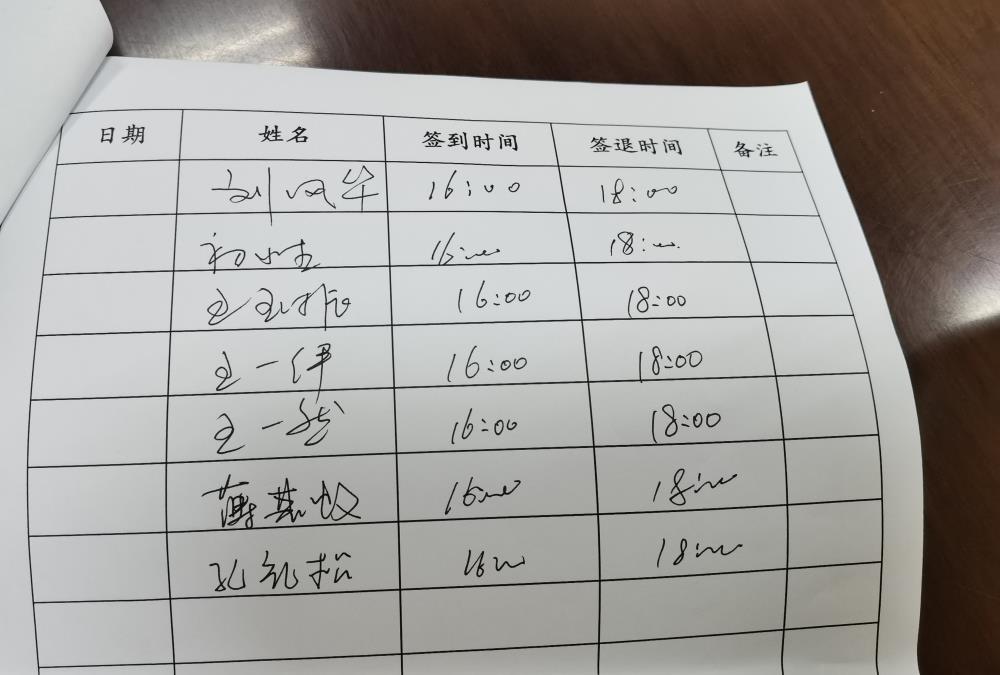 日期 姓名 签到时间 签退时间 备注
刘凤华 16:00 18:00
16:00 18:00
16:00 18:00
王一伊 16:00 18:00
王一然 16:00 18:00
16:00 18:00
16:00 18:00